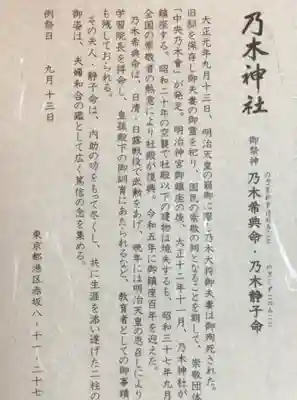 乃木神社
御祭神
のぎまれすけのみこと
乃木希典命・
のぎしずこのみこと
乃木静子命
大正元年九月十三日、明治天皇の御大葬に際し乃木大将御夫妻は御殉死された。
旧邸を保存し御夫妻の御霊を祀り、国民の崇敬の的となることを願して、崇敬団体
「中央乃木會」が発足。明治神宮御鎮座の後、大正十二年十一月、乃木神社が
鎮座する。昭和二十年の空襲で社殿以下の建物は焼失するも、昭和三十七年九月
全国の崇敬者の熱意により社殿が復興。令和五年に御鎮座百年を迎えた。
乃木希典命は、日清・日露戦役で武勲をあげ、晩年には明治天皇の思召により
学習院長を拝命し、皇孫殿下の御訓育にあたられるなど、教育者としての御事蹟
も残しておられる。
その夫人・静子命は、内助の功をもて尽くし、共に生涯を添い遂げた二柱の
御姿は、夫婦和合の鑑として広く篤信の念を集める。
例祭日 九月十三日
東京都港区赤坂八-十一-二十七